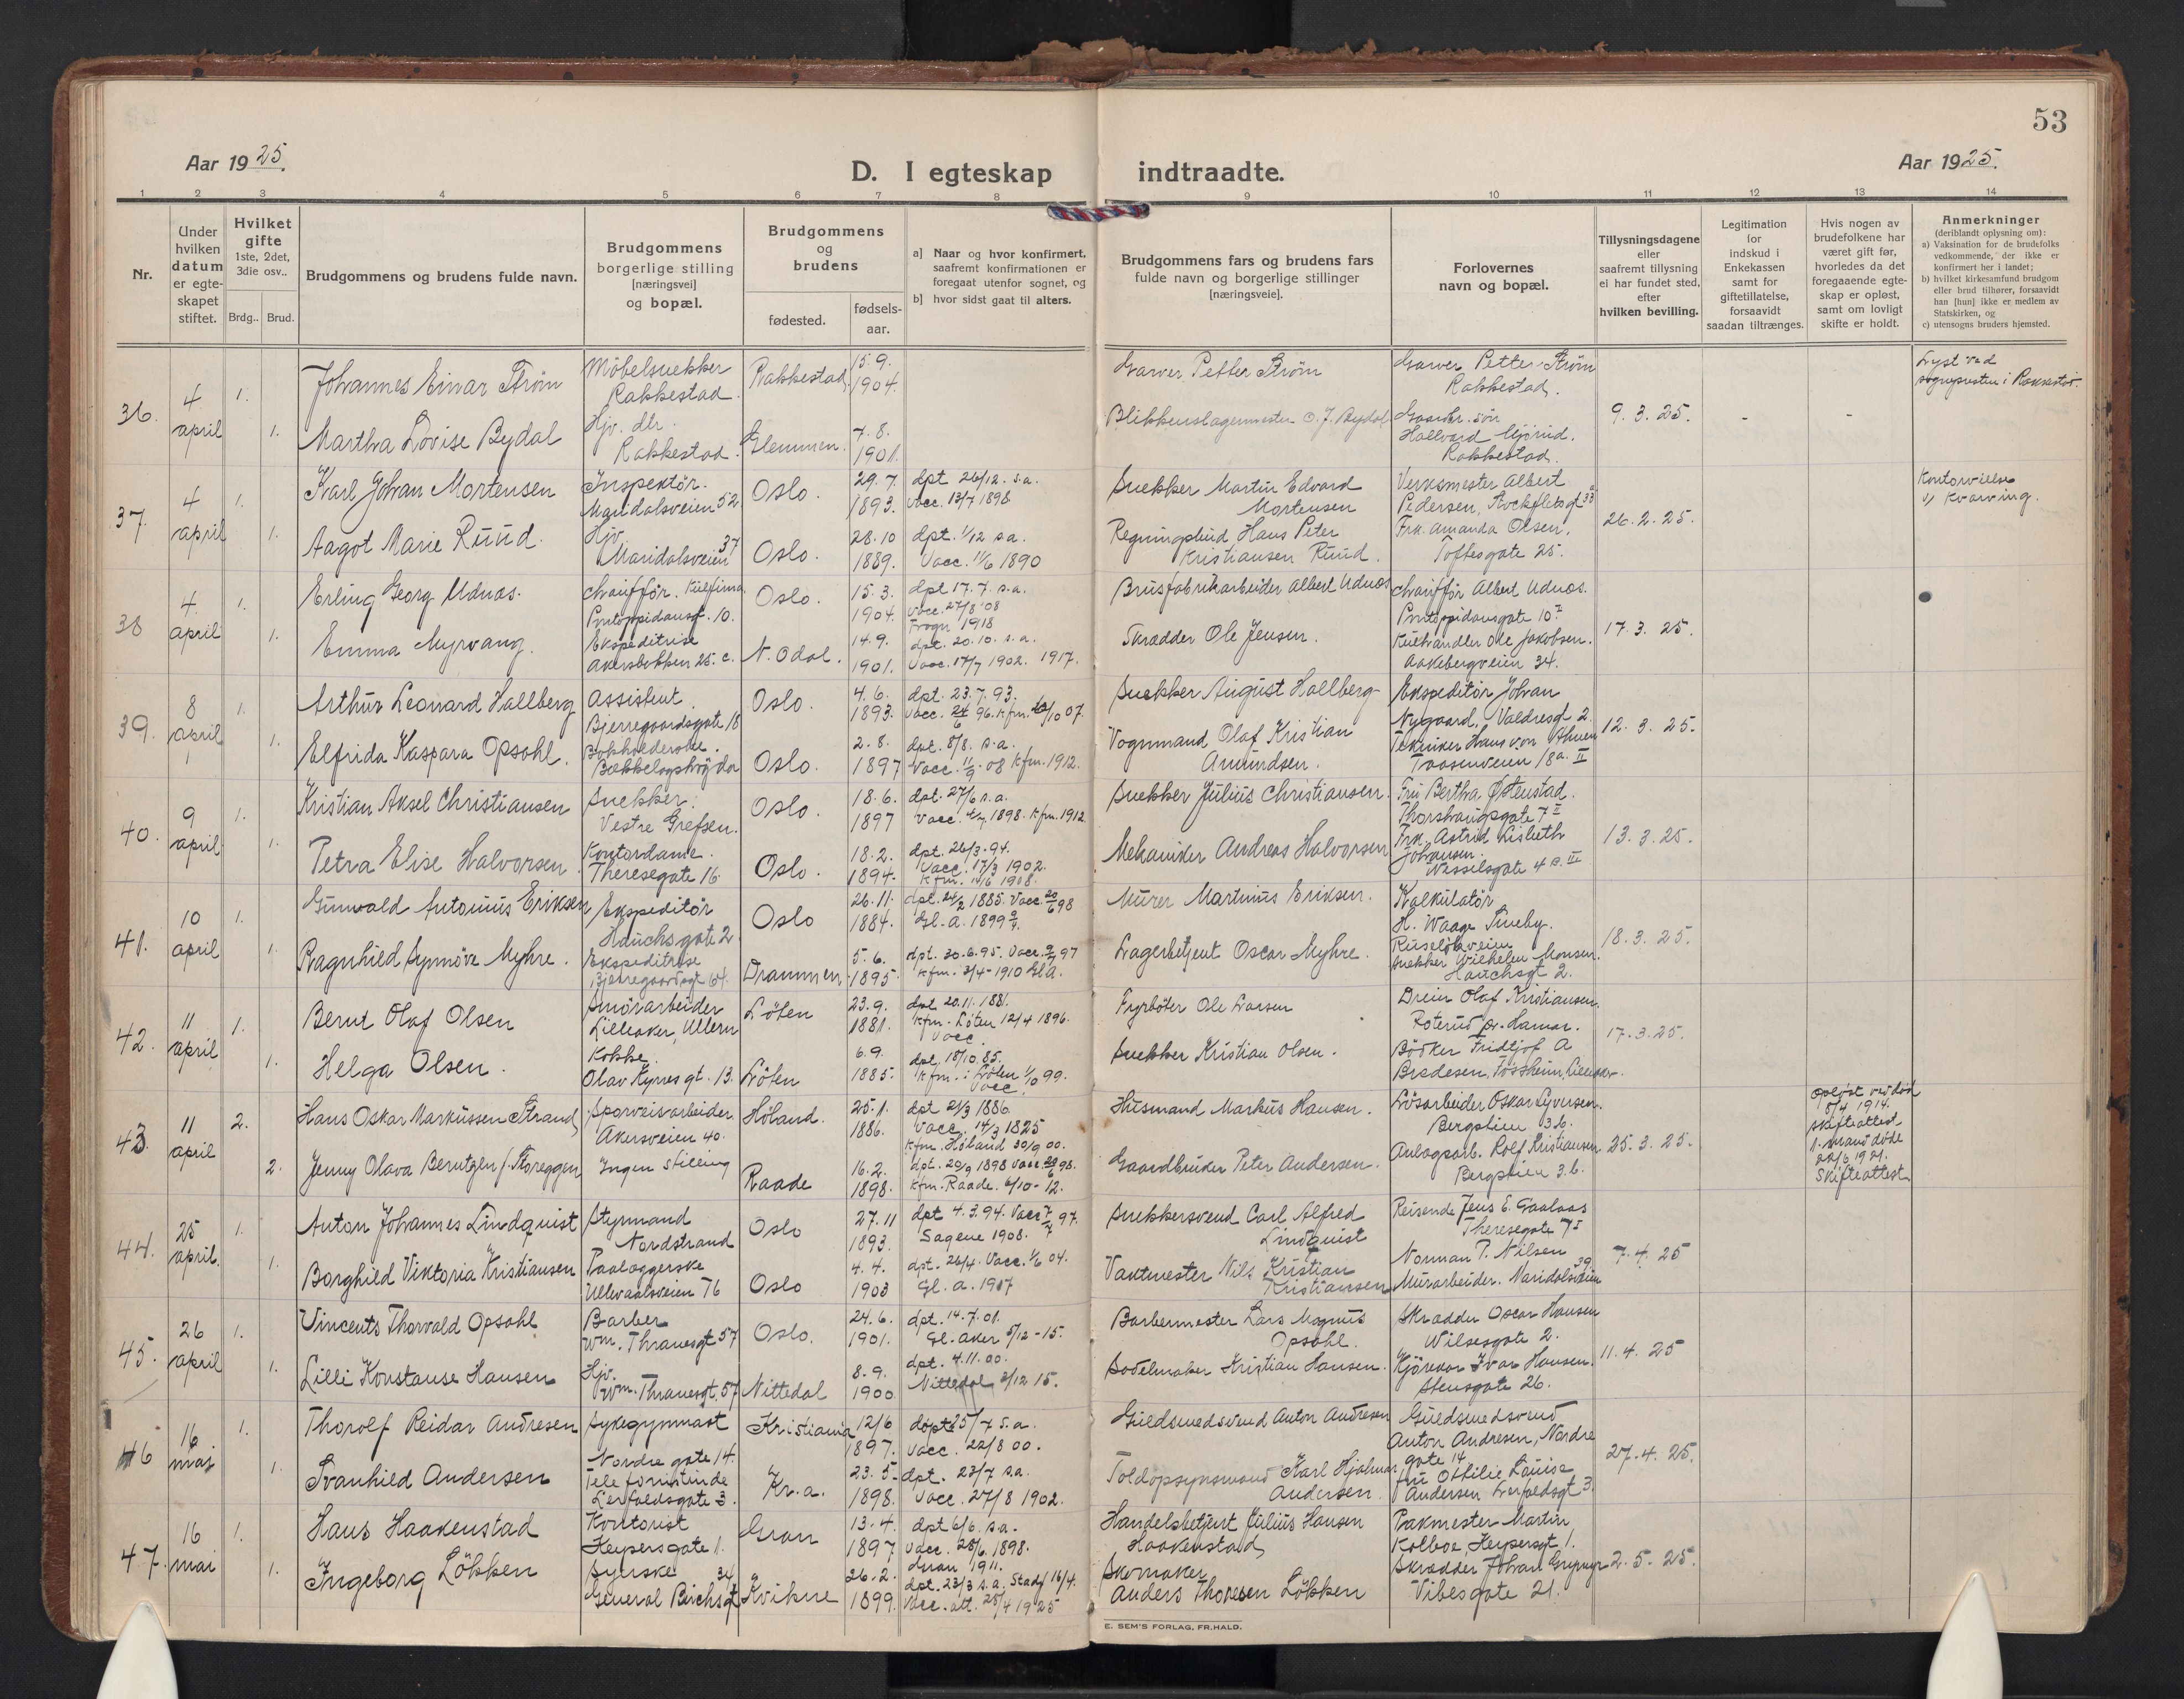 53
Aar 1925.
D. I egteskap indtraadte.
Aar 1925.
1 2 3 4 5 6 7 8 9 10 11 12 13 14
Nr.
Under hvilken datum er egte- skapet stiftet.
Hvilket gifte 1ste, 2det, 3die osv..
Brdg.. Brud.
Brudgommens og brudens fulde navn.
Brudgommens borgerlige stilling [næringsvei] og bopæl.
Brudgommens og brudens
fødested. fødsels- aar.
a] Naar og hvor konfirmert, saafremt konfirmationen er foregaat utenfor sognet, og
b] hvor sidst gaat til alters.
Brudgommens fars og brudens fars fulde navn og borgerlige stillinger [næringsveie].
Forlovernes navn og bopæl.
Tillysningsdagene eller saafremt tillysning ei har fundet sted, efter hvilken bevilling.
Legitimation for indskud i Enkekassen samt for giftetillatelse, forsaavidt saadan tiltrænges.
Hvis nogen av brudefolkene har været gift før, hvorledes da det foregaaende egte- skap er opløst, samt om lovligt skifte er holdt.
Anmerkninger (deriblandt oplysning om):
a) Vaksination for de brudefolks vedkommende, der ikke er konfirmert her i landet;
b) hvilket kirkesamfund brudgom eller brud tilhører, forsaavidt han [hun] ikke er medlem av Statskirken, og
c) utensogns bruders hjemsted.
36. 4 april 1. Johannes Einar Strøm Möbelsnekker Rakkestad. Rakkestad. 15.9. 1904. Garver Petter Strøm Garver Petter Strøm Rakkestad. Lyst ved sogneprsten i Rakkestad.
1. Martha Lovise Bydal Hjv. dtr. Rakkestad. Glemmen. 7.8. 1901. Blikkenslagermester O. J. Bydal Hallvard Rakkestad. 9.3.25. - -
37. 4 april 1. Karl Johan Mortensen Inspektör. Maridalsveien 52. Oslo. 29.7. 1893. dpt 26/12. s.a. Vacc. 13/7 1898. Snekker Martin Edvard Mortensen Verksmester Albert Pedersen, Kontorvielse v/ Kvarving.
1. Aagot Marie Ruud. Hjv. Maridalsveien 37 Oslo. 28.10 1889. dpt. 1/12 s.a. Vacc. 11/6 1890 Regningsbud Hans Peter Kristiansen Ruud. Frk. Amanda Olsen, Toftesgate 25. 26.2.25.
38 4. april 1. Erling Georg Udnæs. Chaufför. Pontoppidansg. 10. Oslo. 15.3. 1904. dpt 17.7. s.a. Vacc. 27/8 '08 Frogn 1918 Brusfabrikarbeider Albert Udnæs Chaufför Albert Udnæs. Pontoppidansgate 10
1. Emma Myrvang. Ekspeditrise Akersbakken 25. c. N. Odal. 14.9. 1901. dpt. 20.10. s.a. Vacc. 17/7 1902. 1917. Skrædder Ole Jensen. Kulhandler Ole Jakobsen. Aakebergveien 34. 17.3.25.
39. 8 april 1. Arthur Leonard Hallberg Assistent. Bjerregaardsgate 18 Oslo. 4.6. 1893. dpt. 23.7.93. Vacc. 24/6 96. Kfm. 20/10 07. Snekker August Hallberg Ekspeditör Johan Nygaard, Valdresgt 2.
1. Elfrida Kaspara Opsahl. Bokholderske. Bækkelagshøgda Oslo. 2.8. 1897 dpt. 8/8. s.a. Vacc. 11/9.08 Kfm. 1912. Vognmand Olaf Kristian Amundsen. Tekniker Hans von Taasenveien 18a. II 12.3.25.
40. 9 april 1. Kristian Aksel Christiansen Snekker. Vestre Grefsen. Oslo. 18.6. 1897 dpt. 27/6 s.a. Vacc. 1898. Kfm. 1912 Snekker Julius Christiansen. Fru Bertha Østenstad. Thorshaugsgate 7 II
1. Petra Elise Halvorsen. Kontordame. Theresegate 16. Oslo. 18.2. 1894. dpt. 26/3.94. Vacc. 17/3 1902. Kfm. 1908. Mekaniker Andreas Halvorsen Frk. Astrid Lisbeth Johansen. Wesselsgate 4 III 13.3.25.
41. 10 april 1. Gunvald Antonius Eriksen Ekspeditör Hauchsgate 2. Oslo 26.11. 1884. dpt. 24/2 1885. Vacc. 20/6 98 Gl. A. 1899 Murer Martinius Eriksen. Kalkulatör H. Waage Tineby. Ruseløkveien
1. Ragnhild Synnöve Myhre. Ekspeditrise Bjerregaardsgt 64. Drammen. 5.6. 1895. dpt. 30.6.95. Kfm. 3/4-1910 Gl A. Lagerbetjent Oscar Myhre. Snekker Wilhelm Monsen. Hauchsgt 2. 18.3.25.
42. 11 april 1. Bernt Olaf Olsen Smörarbeider Lilleaker, Ullern Löten 23.9. 1881. dpt 20.11.1881. Kfm. Löten 12/4 1896. Vacc. Fyrböter Ole Larsen Dreier Olaf Kristiansen. Roterud pr. Hamar.
1. Helga Olsen. Kokke. Olav Kyrresgt. 13. Löten 6.9. 1885. dpt, 18/10.85. Kfm. i Löten 1/10 99. Vacc. Snekker Kristian Olsen. Bödker Fridtjof A Bredesen, Fossheim, Lilleaker. 17.3.25.
43. 11 april 2. Hans Oskar Markussen Strand, Sporveisarbeider Akersveien 40. Höland. 25.1. 1886. dpt 21/3 1886. Vacc. 14/3 1825 Kfm. Höland 30/9 00. Husmand Markus Hansen. Lösarbeider Oskar Syversen. Bergstien 3b. opløst ved död 8/4 1914. skifteattest
2. Jenny Olava Berntzen f. Storeggen Ingen stilling Raade 16.2. 1898. dpt. 29/9 1898 Vacc. 98. Kfm. Raade. 6/10-12. Gaardbruker Peter Andersen. Anlægsarb. Rolf Kristiansen Bergstien 3.b. 25.3.25. 1. mand döde 22/6 1921. Skifteattest
44. 25 april. 1. Anton Johannes Lindquist Styrmand Nordstrand Oslo 27.11 1893. dpt 4.3.94. Vacc 7/7 97. Sagene 1908. Snekkersvend Carl Alfred Lindquist Reisende Jens E. Gaalaas Theresegate 7 I
1. Borghild Viktoria Kristiansen Paalæggerske Ullevaalsveien 76 Oslo 4.4. 1903 dpt. 26/4. Vacc. 1/6 04. Gl. a. 1917 Vaktmester Nils Kristian Kristiansen Norman T. Nilsen Murarbeider. Maridalsveien 39 7.4.25
45. 26 april 1. Vincents Thorvald Opsahl Barber Wm. Thranesgt 57 Oslo. 24.6. 1901. dpt. 14.7.01. Gl. Aker 5/12-15. Barbermester Lars Magnus Opsahl. Skrædder Oscar Hansen Wilsesgate 2.
1. Lilli Konstanse Hansen Hjv. Wm. Thranesgt. 57 Nittedal 8.9. 1900 dpt. 4.11.00. Nittedal 3/12 15. Sadelmaker Kristian Hansen. Kjörekar Ivar Hansen. Stensgate 26. 11.4.25
46 16 mai 1. Thorolf Reidar Andresen Sykegymnast Nordre gate 14. Kristiania 12/6 1897. döpt 25/7 s.a. Vacc. 22/8 00. Guldsmedsvend Anton Andresen Guldsmedsvend Anton Andresen, Nordre gate 14
1. Svanhild Andersen Telefonistinde Lerfaldsgate 3. Kr.a. 23.5. 1898. dpt. 23/7 s.a. Vacc. 27/8 1902. Toldopsynsmand Karl Hjalmar Andersen. Fru Othilie Louise Andersen Lerfaldsgt 3. 27.4.25.
47. 16 mai 1. Hans Haakenstad Kontorist Keysersgate 1. Gran 13.4. 1897 dpt 6/6. s.a. Vacc. 28/6. 1898. Gran 1911. Handelsbetjent Julius Hansen Haakenstad, Pakmester Martin Kolboe, Keysersgt 1.
1. Ingeborg Lökken Syerske General Birchsgt 34 Kvikne 26.2. 1899. dpt. 23/3 s.a. 16/4. Vacc. att. 25/4 1925 Skomaker Anders Thoresen Lökken Skrædder Johan Vibesgate 21. 2.5.25.
E. SEM'S FORLAG, FR.HALD.